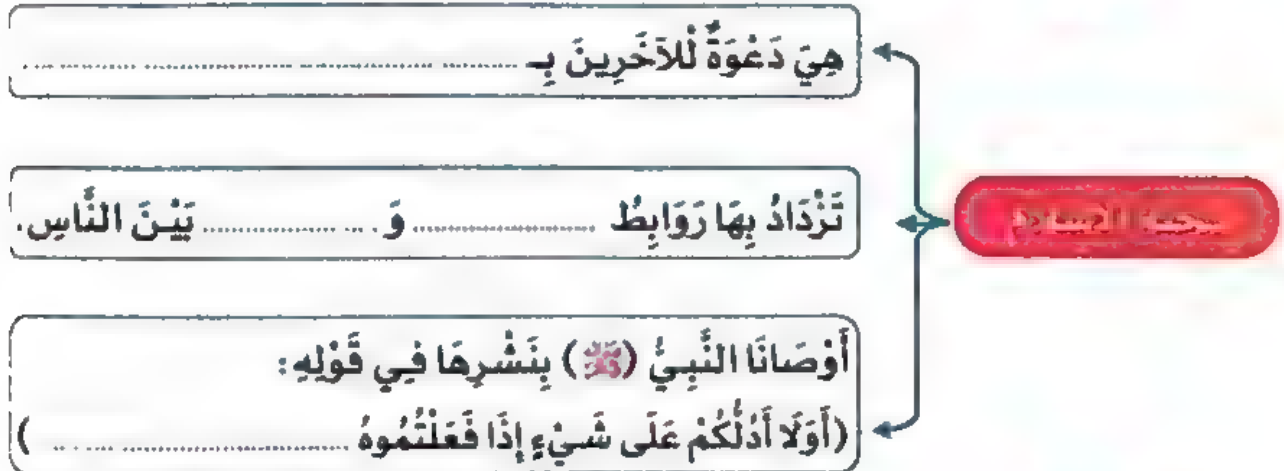 هِيَ دَعْوَةٌ لْلآخَرِينَ بِـ ........................
تَزْدَادُ بِهَا رَوَابِطُ ............ وَ ............ بَيْنَ النَّاسِ.
أَوْصَانَا النَّبِيُّ (ﷺ) بِنَشْرِهَا فِي قَوْلِهِ:
(أَوَلَا أَدُلُّكُمْ عَلَى شَيْءٍ إِذَا فَعَلْتُمُوهُ ........................)